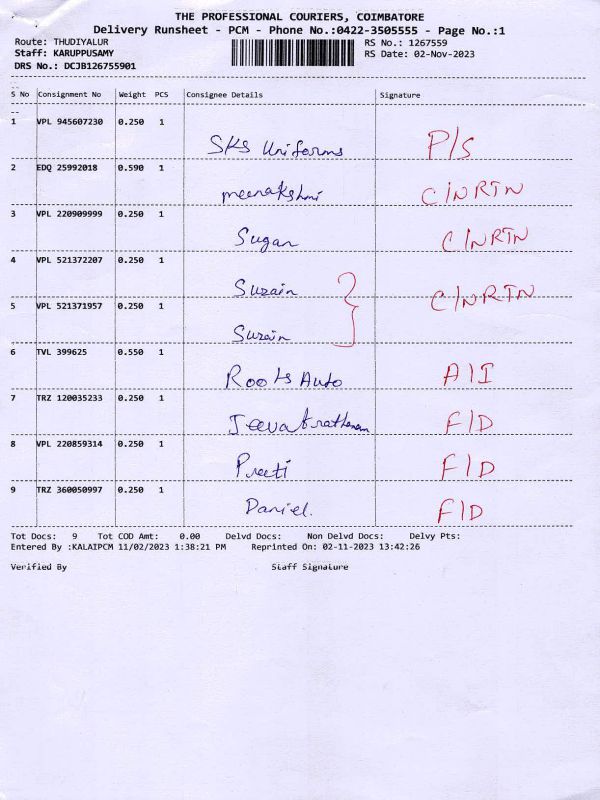 THE PROFESSIONAL COURIERS, COIMBATORE
Delivery Runsheet - PCM - Phone No.:0422-3505555 - Page No.:1
Route: THUDIYALUR RS No.: 1267559
Staff: KARUPPUSAMY RS Date: 02-Nov-2023
DRS No.: DCJB126755901
S No Consignment No Weight PCS Consignee Details Signature
1 VPL 945607230 0.250 1
SKS Uniforms P/S
2 EDQ 25992018 0.590 1
meenakshmi C/NRTN
3 VPL 220909999 0.250 1
Sugan C/NRTN
4 VPL 521372207 0.250 1
Suzain C/NRTN
5 VPL 521371957 0.250 1
Suzain
6 TVL 399625 0.550 1
Roots Auto A/I
7 TRZ 120035233 0.250 1
Jeevabrathanam F/D
8 VPL 220859314 0.250 1
Preeti F/D
9 TRZ 360050997 0.250 1
Daniel. F/D
Tot Docs: 9 Tot COD Amt: 0.00 Delvd Docs: Non Delvd Docs: Delvy Pts:
Entered By :KALAIPCM 11/02/2023 1:38:21 PM Reprinted On: 02-11-2023 13:42:26
Verified By Staff Signature